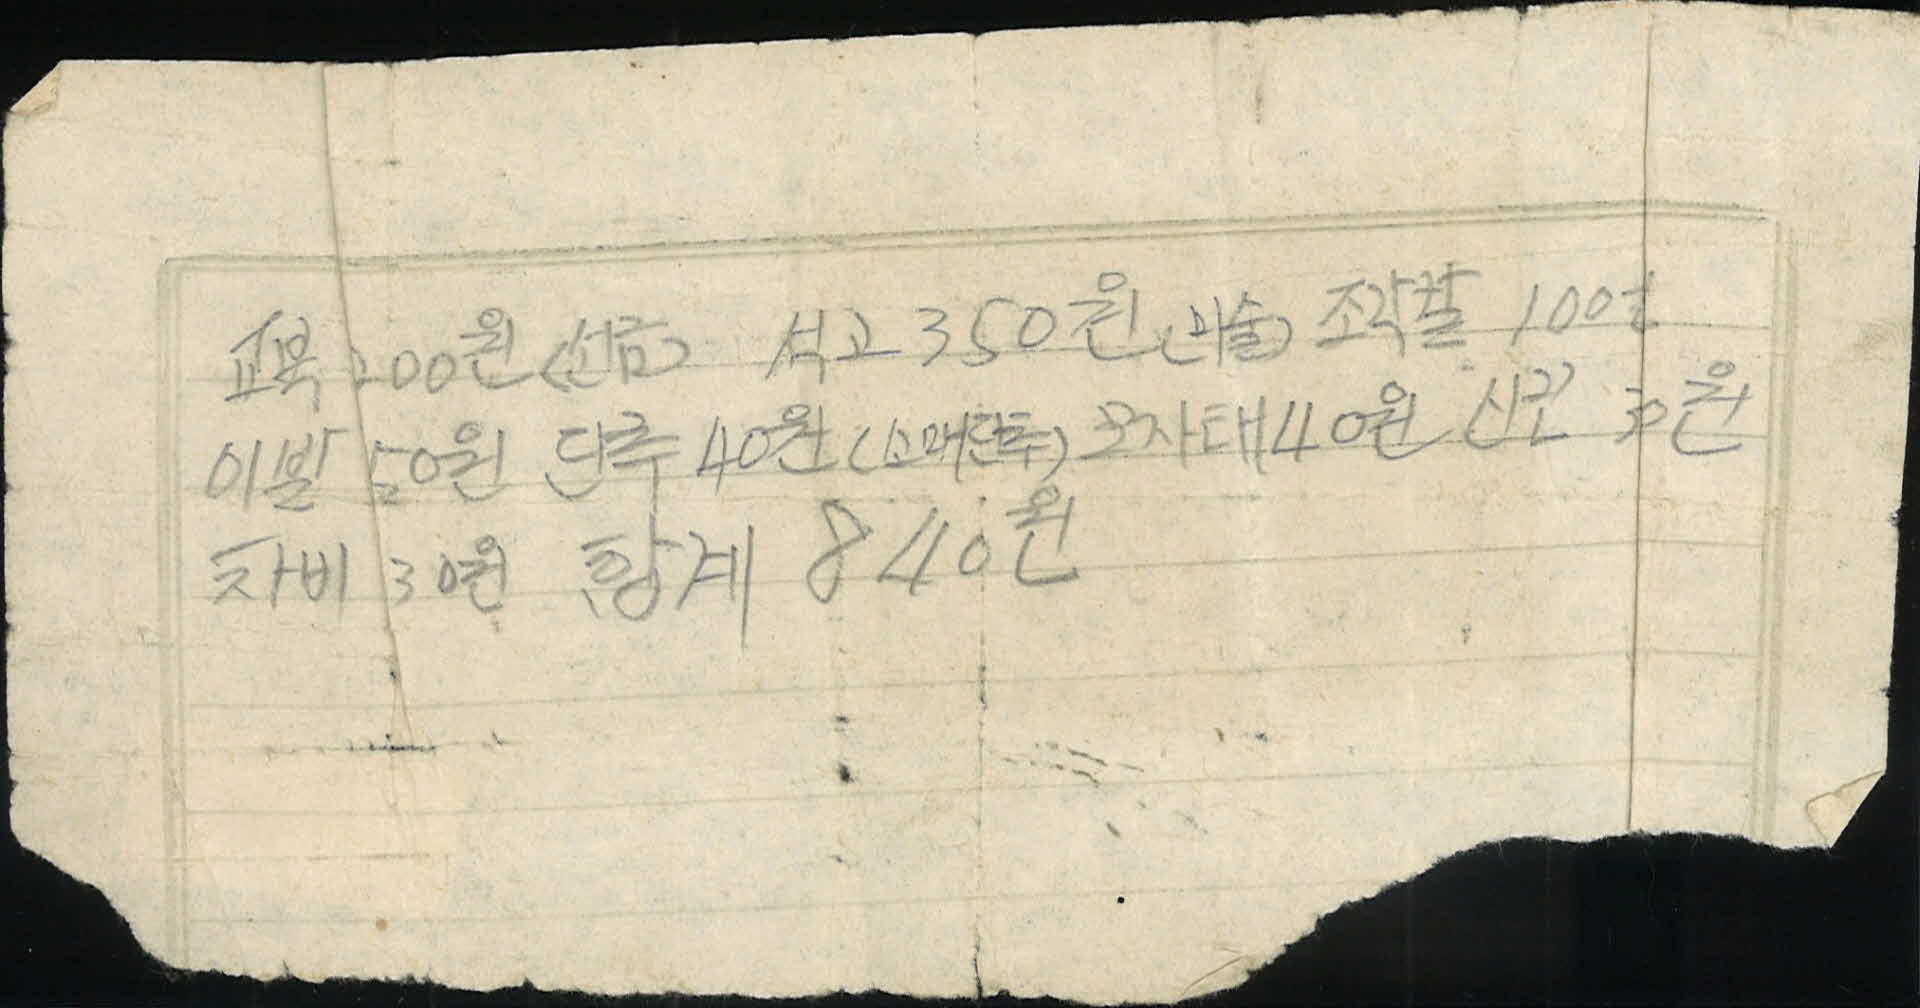 교복 200원(선금) 석고 350원(미술) 조각칼 100원
이발 50원 단추 40원(소매단추) 모자태 40원 신끈 30원
차비 30원 합계 840원